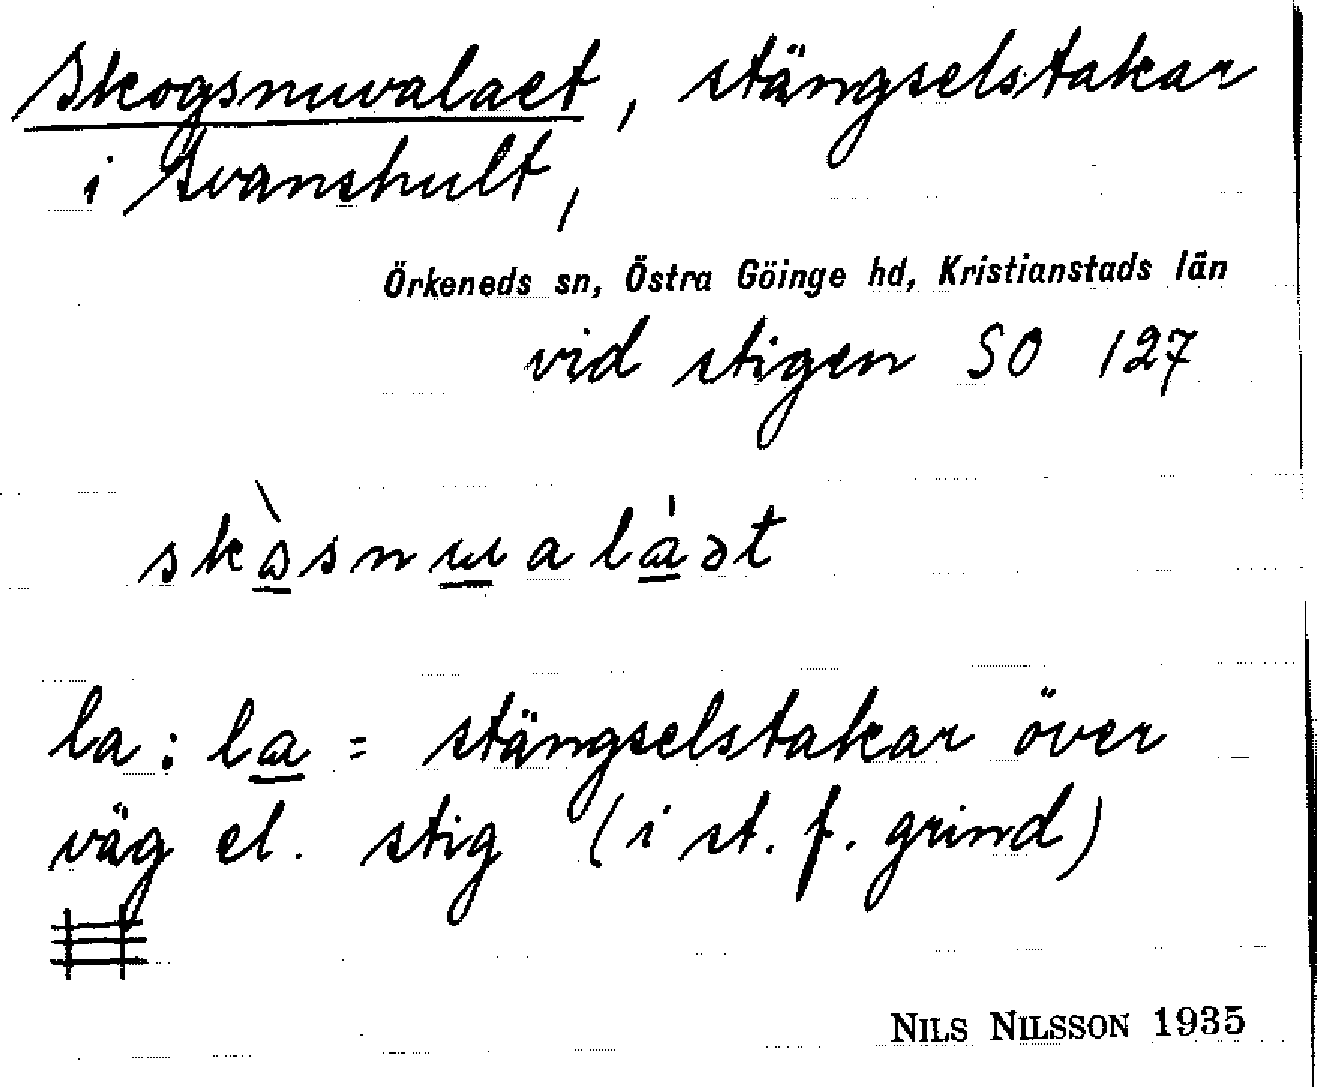 Skogsnuvalaet, stängselstakar
i Svanshult,
Örkeneds sn, Östra Göinge hd, Kristianstads län
vid stigen SO 127
skòsnɯaláət
la: la = stängselstakar över
väg el. stig (i st. f. grind)
NILS NILSSON 1935